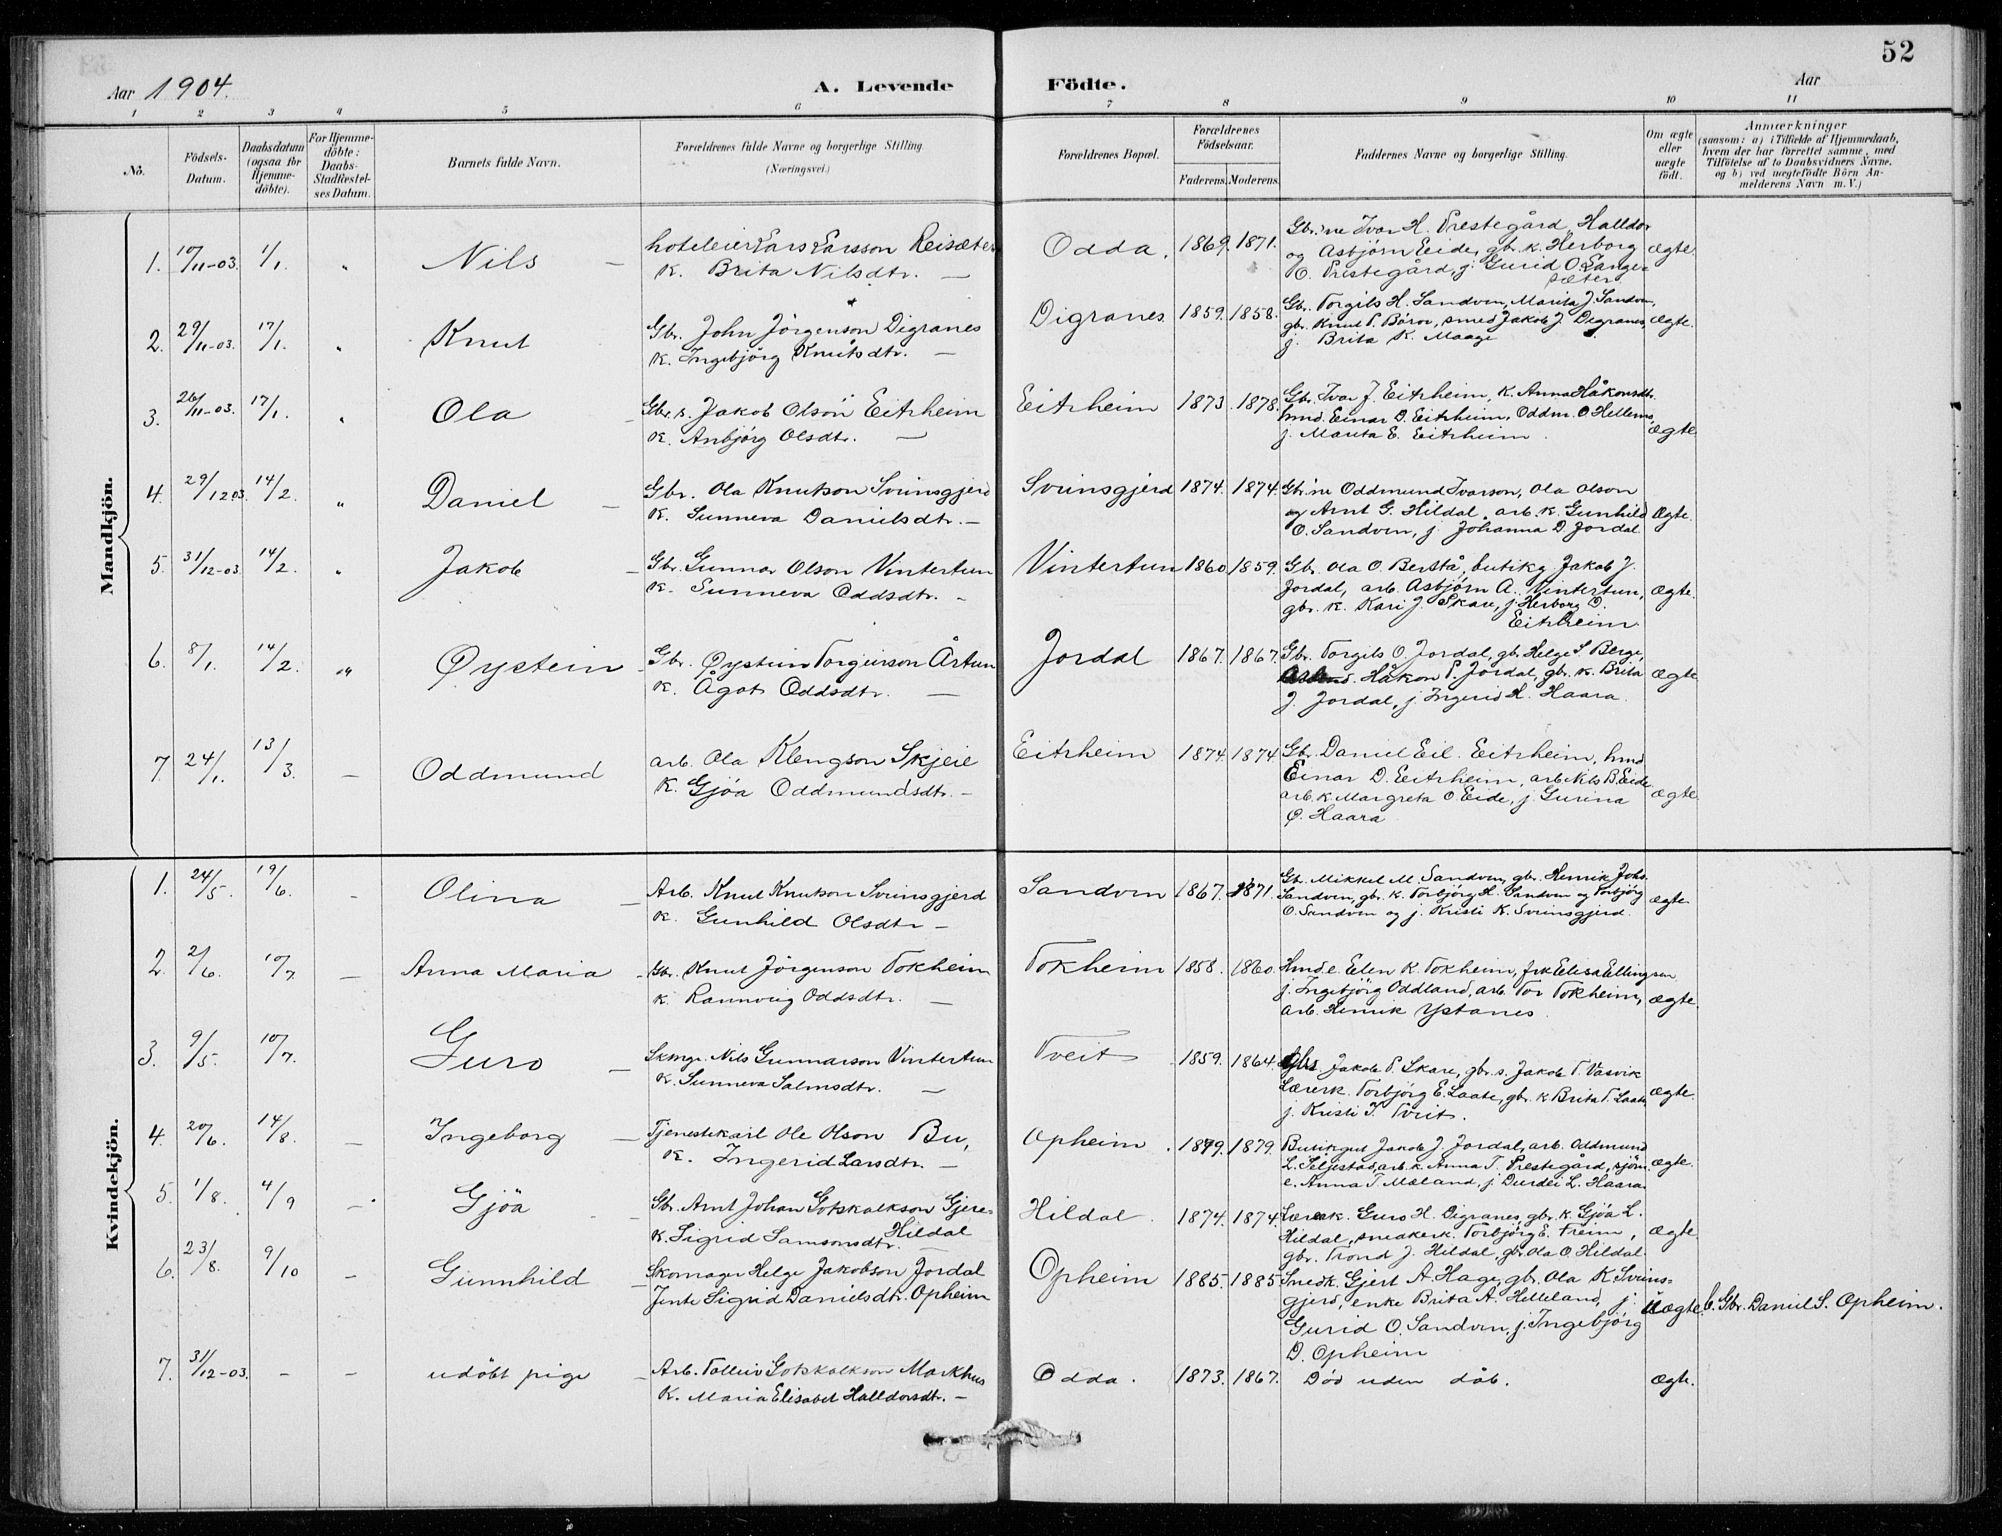 52
Aar 1904.
A. Levende Födte.
Aar
1 2 3 4 5 6 7 8 9 10 11
No.
Födsels-Datum.
Daabsdatum (ogsaa for Hjemme-döbte).
For Hjemme-döbte: Daabs-Stadfæstel-ses Datum.
Barnets fulde Navn.
Forældrenes fulde Navne og borgerlige Stilling. (Næringsvei.)
Forældrenes Bopæl.
Forældrenes Födselsaar.
Faderens. Moderens.
Faddernes Navne og borgerlige Stilling.
Om ægte eller uægte födt.
Anmærkninger
(saasom: a) i Tilfælde af Hjemmedaab,
hvem der har forrettet samme, med
Tilföielse af to Daabsvidners Navne,
og b) ved uægtefödte Börn An-
melderens Navn m. V.)
Mandkjön.
1. 10/11-03. 1/1. " Nils — hoteleier Lars Larsson Reisæter
k. Brita Nilsdtr. —
Odda. 1869. 1871.
Gbr.'ne Ivar H. Prestegård, Halldor
og Asbjörn Eide, gbr. k. Herborg
O. Prestegård, j. Gurid O. Lange=
sæter
ægte.
2. 29/11-03. 17/1. " Knut
Gbr. John Jörgenson Digranes
k. Ingebjörg Knutsdtr. —
Digranes 1859. 1858.
Gbr. Torgils H. Sandven, Marita J. Sandven,
gbr. Knut T. Böroe, smed Jakob J. Digranes,
j. Brita K. Maage
ægte.
3. 26/11-03. 17/1. " Ola —
Gbr. s. Jakob Olson Eitrheim
k. Anbjörg Olsdtr. —
Eitrheim 1873 1878.
Gbr. Ivar J. Eitrheim, k. Anna Håkonsdtr.
hmd. Einar D. Eitrheim, Oddm. O Hellems,
j. Marita E. Eitrheim.
ægte
4. 29/12 03. 14/2. " Daniel —
Gbr. Ola Knutson Svinsgjerd
k. Sunneva Danielsdtr. —
Svinsgjerd 1874. 1874.
Gbr.'ne Oddmund Ivarson, Ola Olson
og Arnt G. Hildal, arb. k. Gunhild
O. Sandven, j. Johanna D. Jordal
ægte.
5. 31/12-03. 14/2. " Jakob —
Gbr. Gunnar Olson Vintertun
k. Sunneva Oddsdtr. —
Vintertun 1860 1859.
Gbr. Ola O. Berstå, butikg Jakob J.
Jordal, arb. Asbjörn A. Vintertun,
gbr. k. Kari J. Skare, j. Herborg O.
Eitrheim
ægte.
6. 8/1. 14/2. " Øystein —
Gbr. Øystein Torgeirson Årtun
k. Ågot Oddsdtr. —
Jordal 1867. 1867.
Gbr. Torgils O. Jordal, gbr. Helge S Berge,
Håkon P. Jordal, gbr. k. Brita
J. Jordal, j. Ingerid H. Haara.
ægte
7 24/1. 13/3. — Oddmund
arb. Ola Klengson Skjeie
k. Gjöa Oddmundsdtr. —
Eitrheim 1874. 1874
Gbr. Daniel Eil. Eitrheim, hmd
Einar D. Eitrheim, arb. Nils B. Eide
arb. k. Margreta O. Eide, j. Gurina
O. Haara
ægte
Kvindekjön.
1. 24/5. 19/6. — Olina —
Arb. Knut Knutson Svinsgjerd
k. Gunhild Olsdtr —
Sandven 1867. 1871.
Gb. Mikkel M. Sandven, gbr. Henrik Johs.
Sandven, gbr. k. Torbjörg H. Sandven og Torbjörg
O. Sandven og j. Kristi K. Svinsgjerd.
ægte
2. 2/6. 10/7 — Anna Maria —
Gbr. Knut Jörgenson Tokheim
k. Rannveig Oddsdtr. —
Tokheim 1858. 1860.
Hmd. e. Elen K. Tokheim, frk Elisa Ellingsen
j. Ingebjörg Oddland, arb. Tor Tokheim,
arb. Henrik Ystanes.
ægte.
3. 9/5. 10/7. Guro —
Skmgr. Nils Gunnarson Vintertun
k. Sunneva Salmsdtr. —
Tveit 1859. 1864.
Gbr. Jakob P. Skare, gbr. s. Jakob T. Vasvik
Lærerk. Torbjörg E. Laate, gbr. k Brita T. Laate
j. Kristi T. Tveit.
ægte.
4. 20/6. 14/8. — Ingeborg —
Tjenestekarl Ole Olson Bu,
k. Ingerid Larsdtr. —
Opheim. 1879. 1879.
Butikgut Jakob J Jordal, arb. Oddmund
L. Seljestad, arb. k. Anna T. Prestegård, sjöm.
e. Anna T. Mæland, j. Durdei L. Haara
ægte.
5. 1/8. 4/9 — Gjöa —
Gbr. Arnt Johan Gotskalkson Gjere-
Hildal
k. Sigrid Samsonsdtr.
Hildal. 1874. 1874.
Lærerk. Guro H. Digranes, gbr. k. Gjöa L.
Hildal, snekerk. Torbjörg E. Freim,
gbr. Trond J. Hildal, gbr. Ola O Hildal
ægte
6. 23/8. 9/10 — Gunnhild
Skomager Helge Jakobson Jordal
Jente Sigrid Danielsdtr. Opheim
Opheim 1885. 1885
Smedk. Gjert A. Hage, gbr. Ola K. Svins=
gjerd, enke Brita A. Helleland, j.
Gurid O. Sandven, j. Ingebjörg
D. Opheim
Uægte. b. Gbr. Daniel S. Opheim.
7. 31/12-03. — — udöbt pige —
Arb. Tolleiv Gotskalkson Markhus
k. Maria Elisabet Halldorsdtr. —
Odda. 1873. 1867.
Död uden dåb.
ægte.